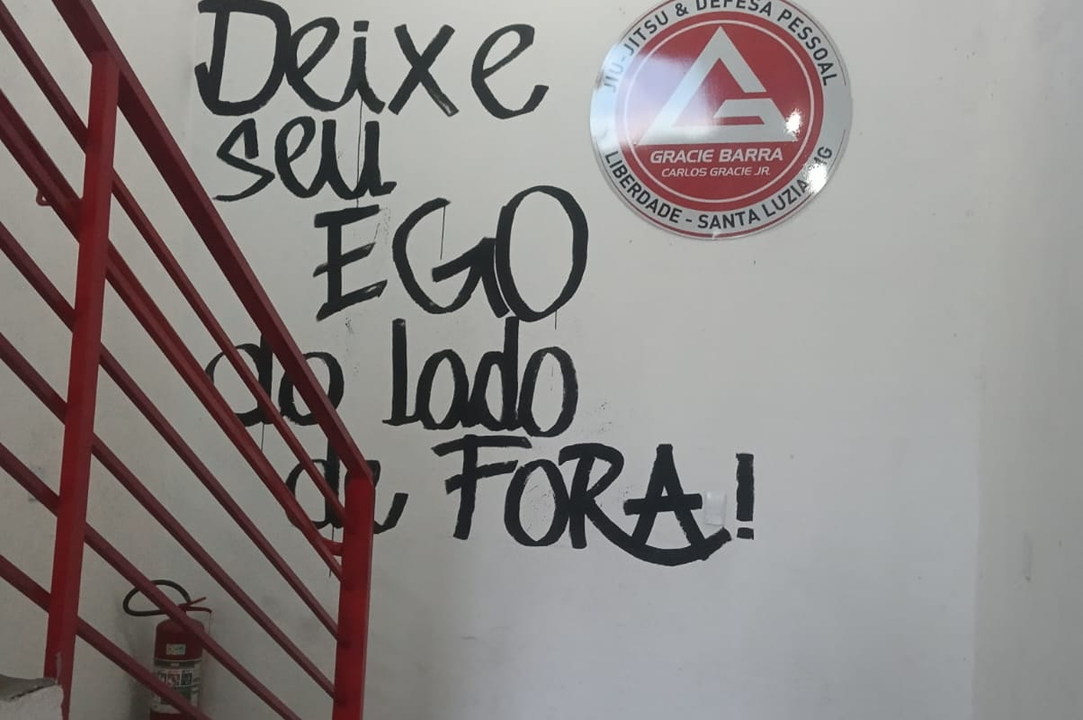 Deixe
seu
EGO
do lado
de FORA!
JIU-JITSU & DEFESA PESSOAL
GRACIE BARRA
CARLOS GRACIE JR.
LIBERDADE - SANTA LUZIA MG